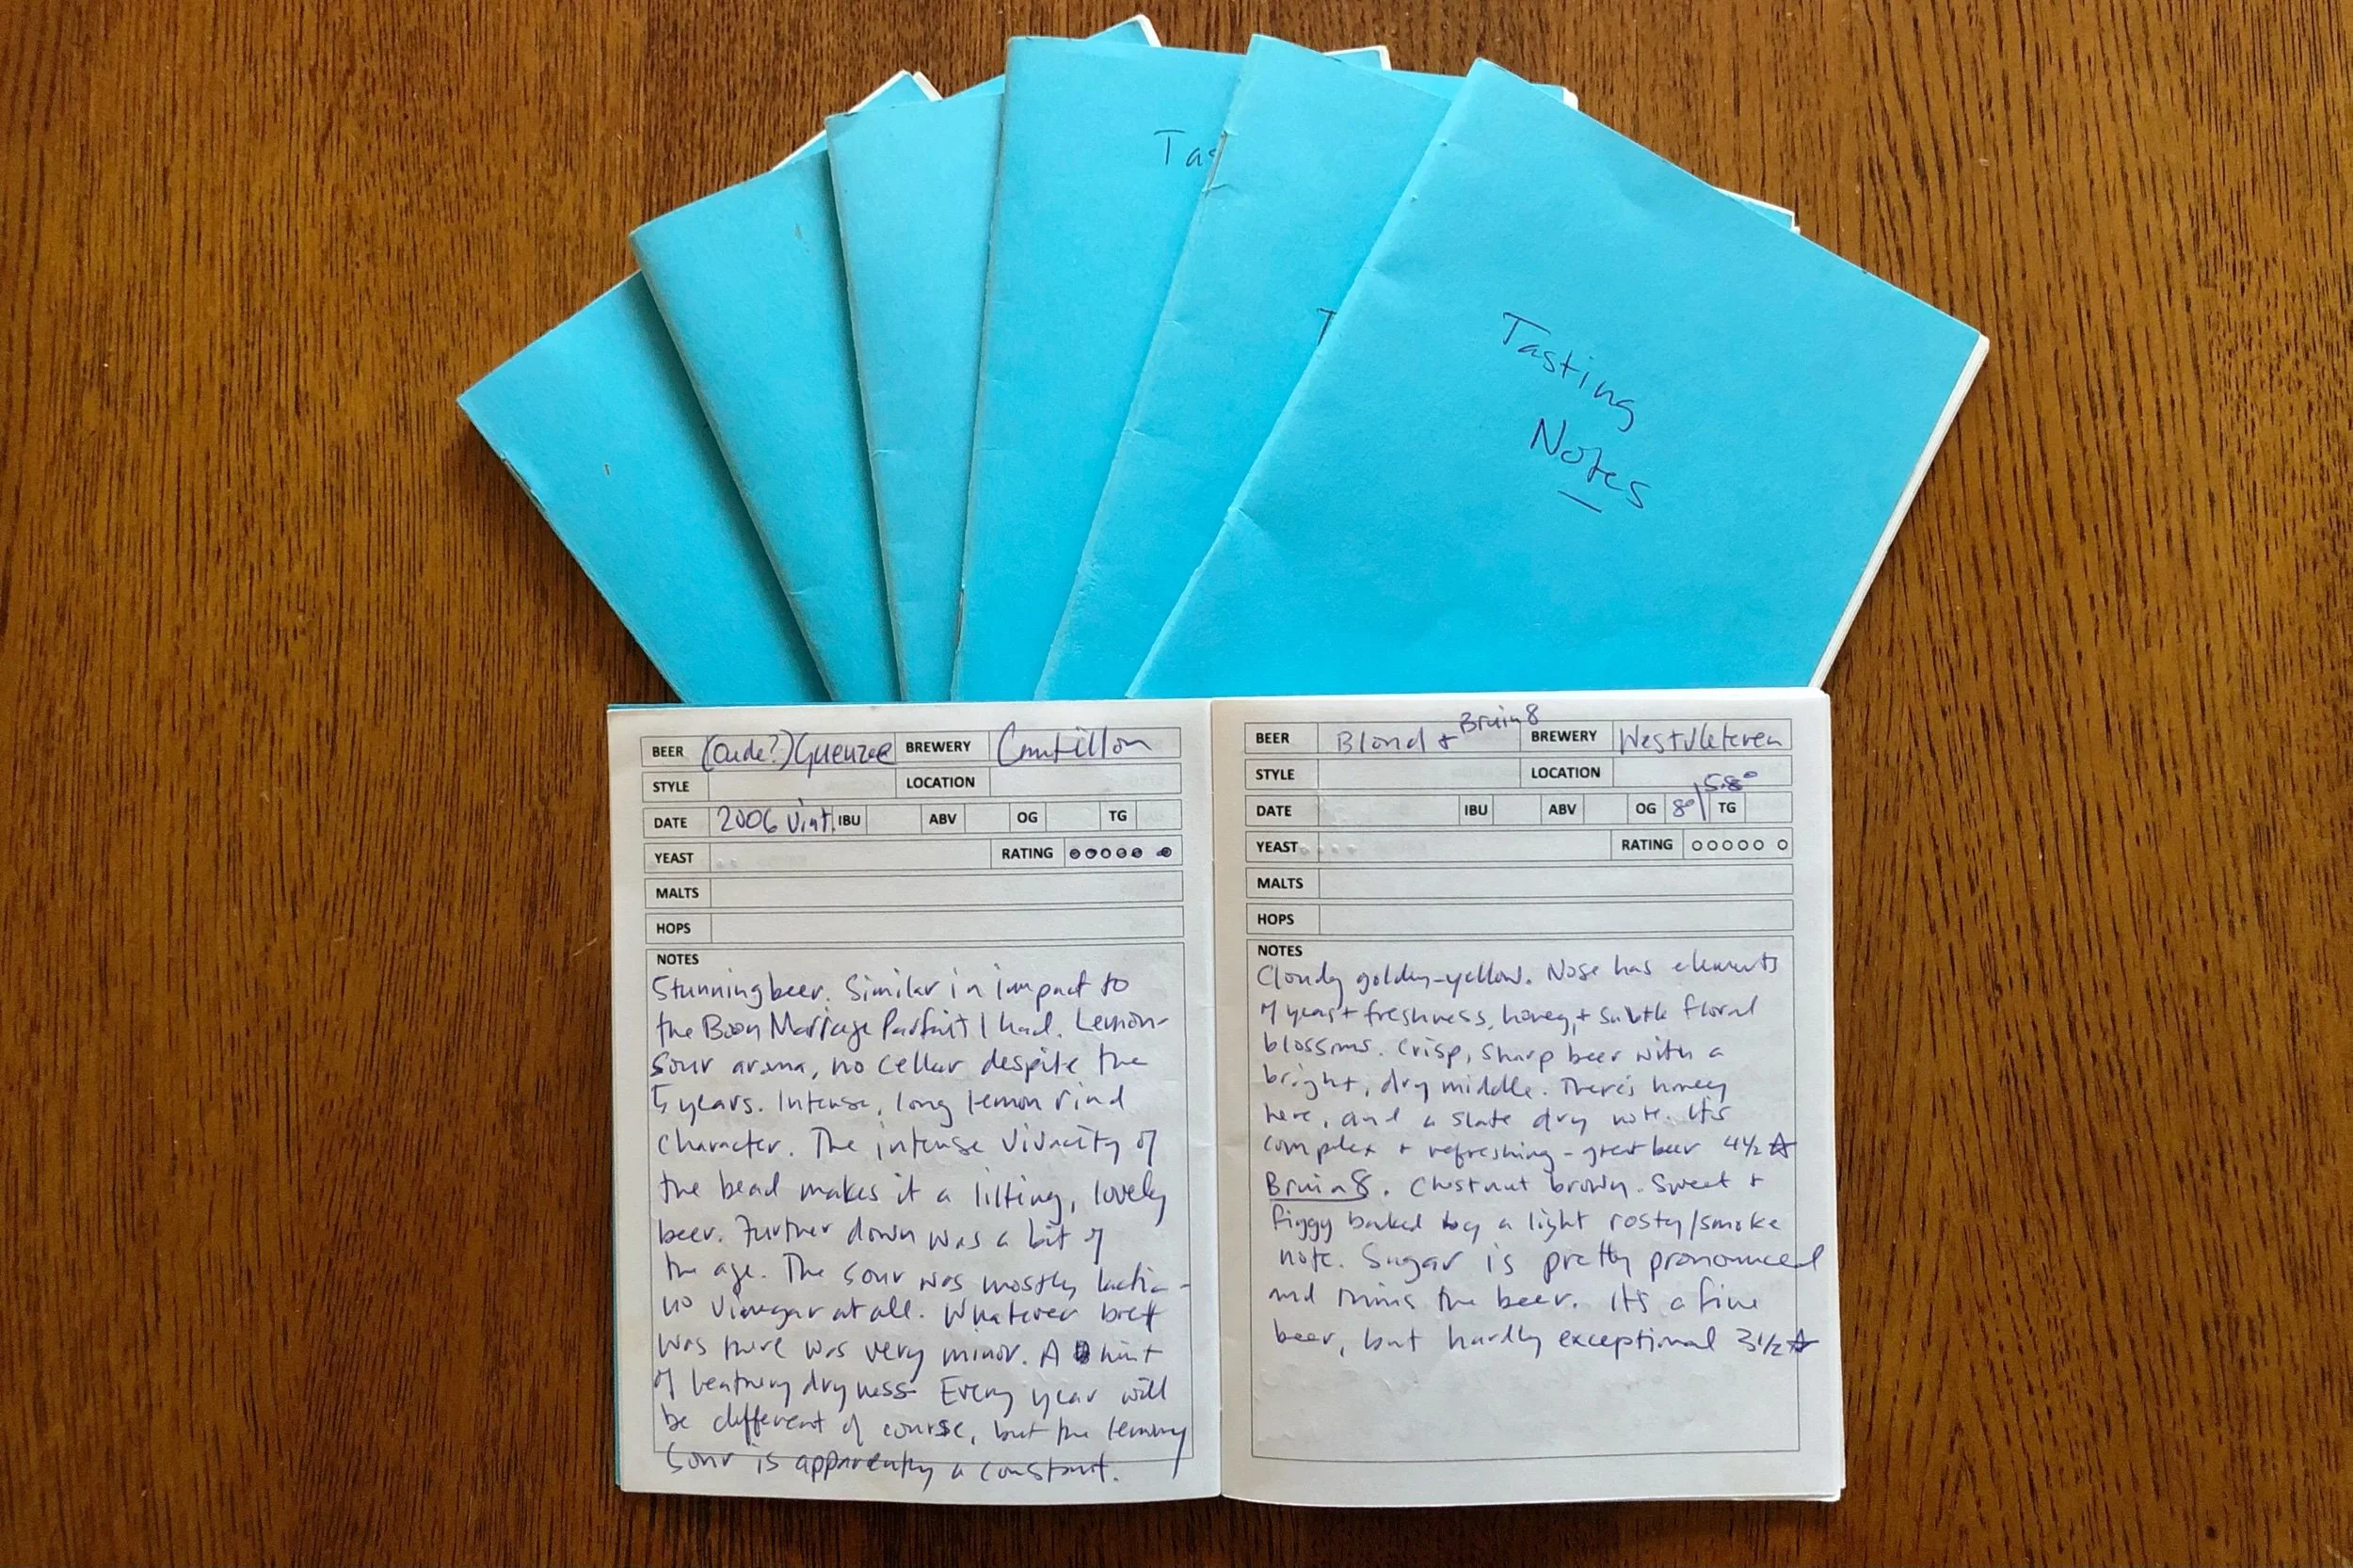 Tas
T
Tasting
Notes
BEER (Oude?) Gueuze BREWERY Cantillon
STYLE LOCATION
DATE 2006 Vint. IBU ABV OG TG
YEAST RATING
MALTS
HOPS
NOTES
Stunning beer. Similar in impact to
the Boon Mariage Parfait I had. Lemon-
sour aroma, no cellar despite the
5 years. Intense, long lemon rind
character. The intense vivacity of
the bead makes it a lilting, lovely
beer. Further down was a bit of
the age. The sour was mostly lactic -
no vinegar at all. Whatever brett
was there was very minor. A hint
of leathery dryness. Every year will
be different of course, but the lemony
sour is apparently a constant.
BEER Blond + Bruin 8 BREWERY Westvleteren
STYLE LOCATION
DATE IBU ABV OG 8° | 5.8° TG
YEAST RATING
MALTS
HOPS
NOTES
Cloudy golden-yellow. Nose has elements
of yeast freshness, honey, + subtle floral
blossoms. Crisp, sharp beer with a
bright, dry middle. There's honey
here, and a slate dry note. It's
complex + refreshing - great beer 4½ ☆
Bruin 8. Chestnut brown. Sweet +
figgy backed by a light rosty/smoke
note. Sugar is pretty pronounced
and thins the beer. It's a fine
beer, but hardly exceptional 3½ ☆